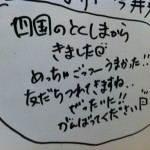 四国のとくしまから
きました
めっちゃごっつーうまかった!!
友だちつれてきますね。
ぜったいに!!
がんばってください